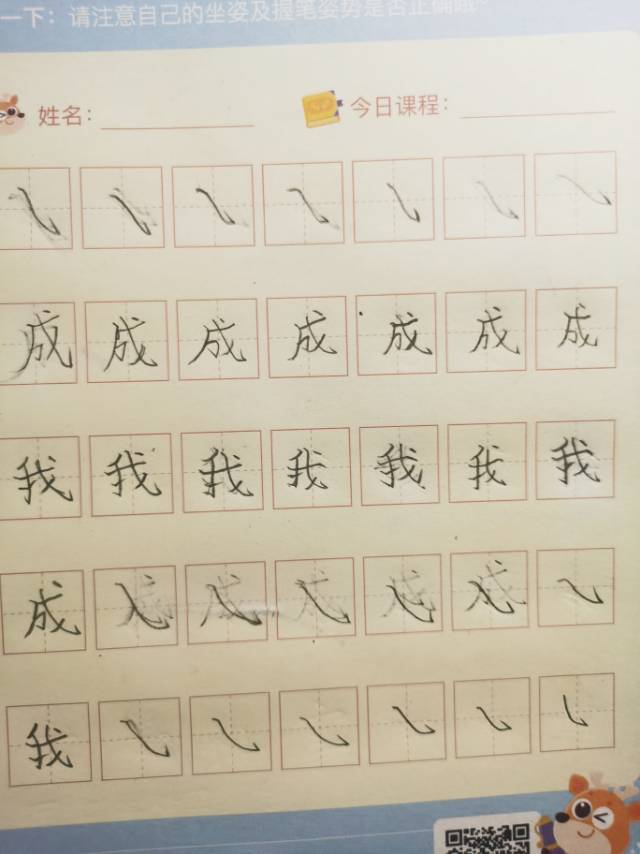 一下：请注意自己的坐姿及握笔姿势是否正确哦~
姓名：
今日课程：
㇂ ㇂ ㇂ ㇂ ㇂ ㇂ ㇂
成 成 成 成 成 成 成
我 我 我 我 我 我 我
成 ㇂ ㇂ ㇂ ㇂ ㇂ ㇂
我 ㇂ ㇂ ㇂ ㇂ ㇂ ㇂